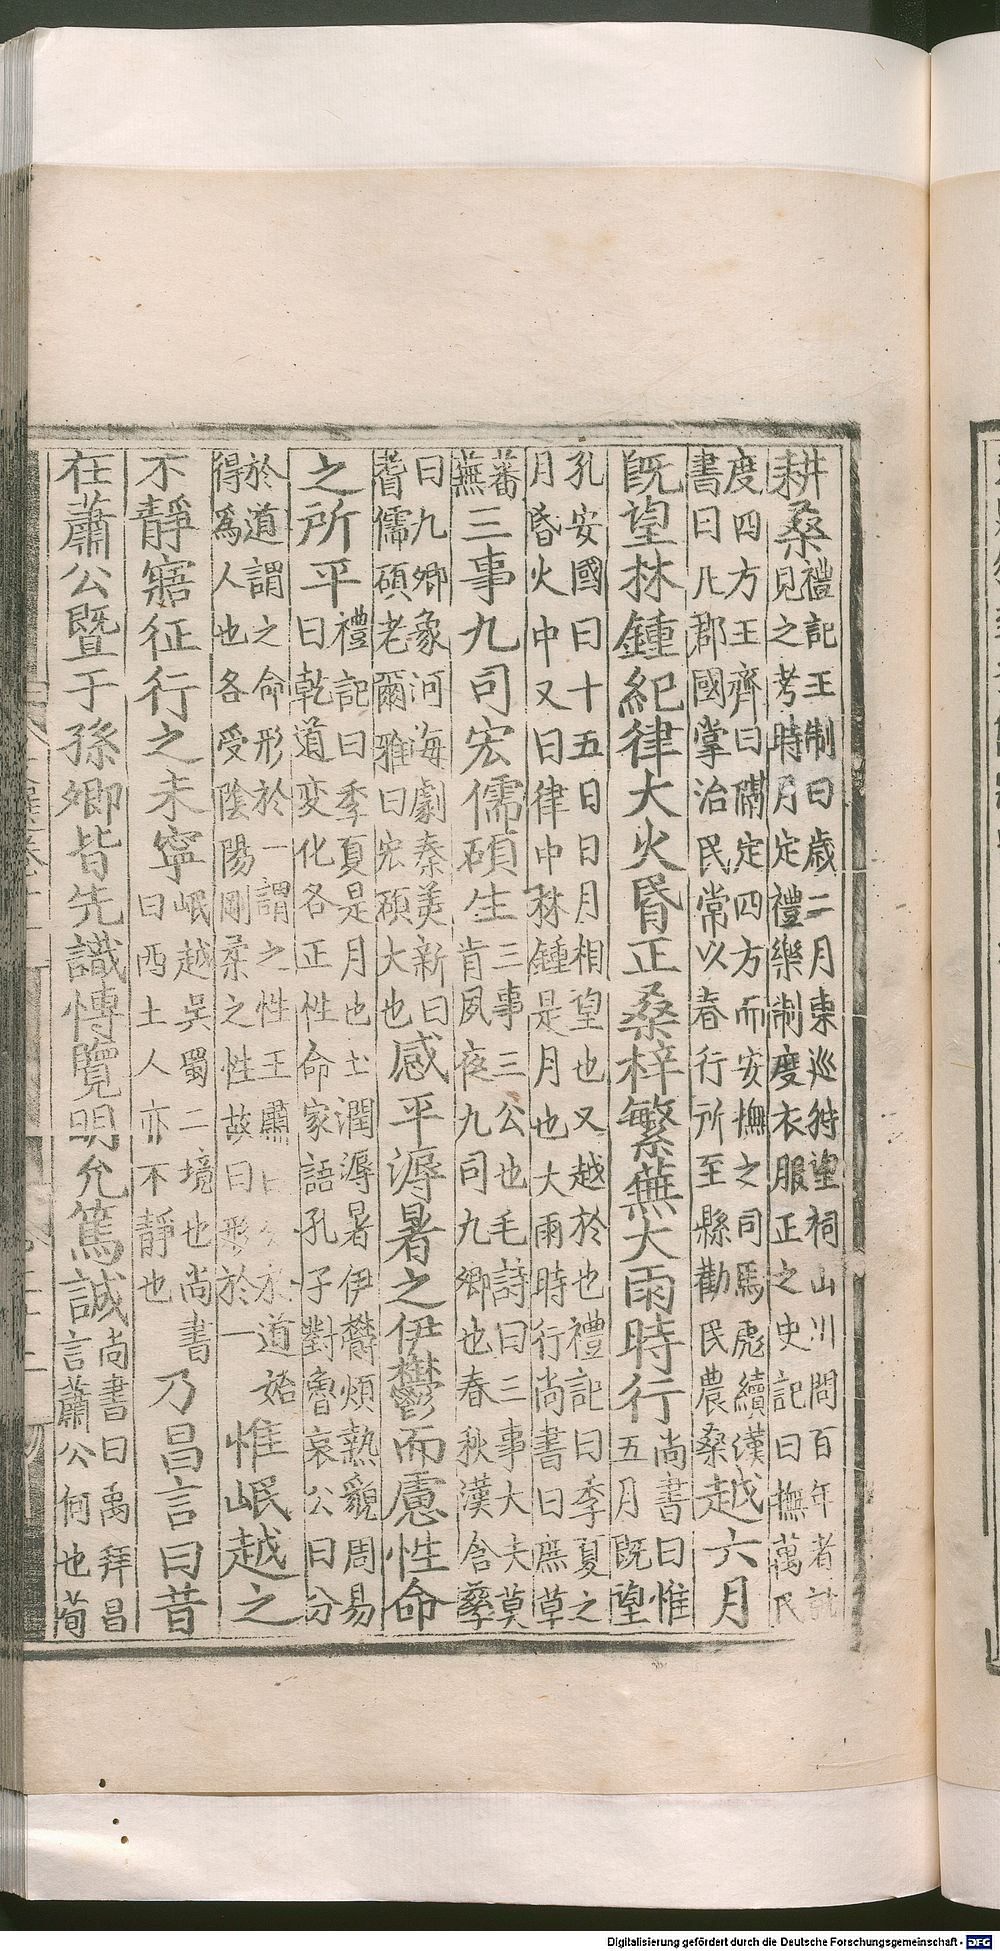 耕桑禮記王制曰歲二月東巡狩望祠山川問百年者就
見之考時月定禮樂制度衣服正之史記曰撫萬民
度四方王齊曰隅定四方而安撫之司馬彪續漢
書曰凡郡國掌治民常以春行所至縣勸民農桑越六月
旣望林鍾紀律大火昏正桑梓繁蕪大雨時行尚書曰惟
五月旣望
孔安國曰十五日日月相望也又越於也禮記曰季夏之
月昏火中又曰律中林鍾是月也大雨時行尚書曰庶草
蕃
蕪三事九司宏儒碩生三事三公也毛詩曰三事大夫莫
肯夙夜九司九卿也春秋漢含孳
曰九卿象河海劇秦美新曰
耆儒碩老爾雅曰宏碩大也感平溽暑之伊鬱而慮性命
之所平禮記曰季夏是月也土潤溽暑伊鬱煩熱貌周易
曰乾道變化各正性命家語孔子對魯哀公曰分
於道謂之命形於一謂之性王肅道始
得爲人也各受陰陽剛柔之性故曰形於一惟岷越之
不靜寤征行之未寧岷越吳蜀二境也尚書
曰西土人亦不靜也乃昌言曰昔
在蕭公暨于孫卿皆先識博覽明允篤誠尚書曰禹拜昌
言蕭公何也荀
Digitalisierung gefördert durch die Deutsche Forschungsgemeinschaft - DFG